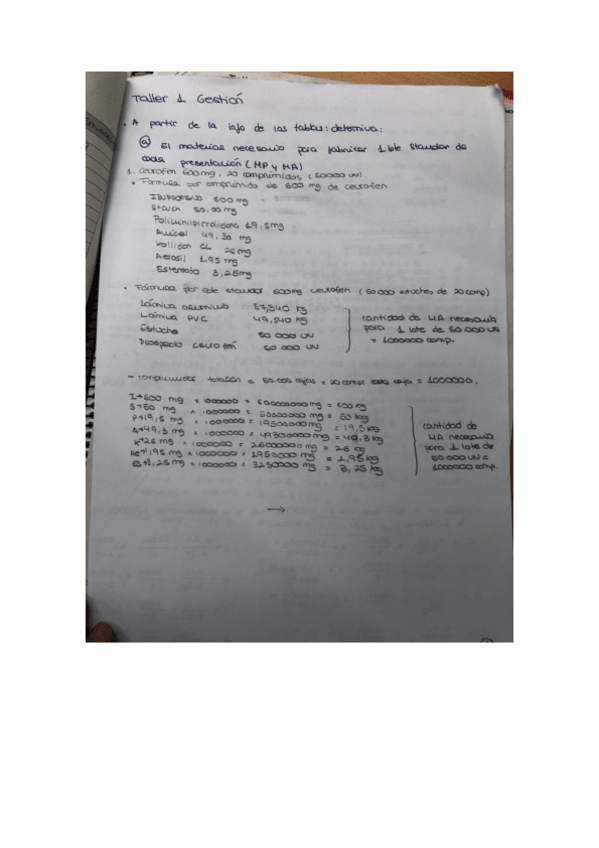 Taller 1 Gestión
• A partir de la info de las tablas: determina:
ⓐ El material necesario para fabricar 1 lote standar de
cada presentación (MP y MA)
1. Ceurofen 600mg, 20 comprimidos (50000 UN)
• Fórmula por comprimido de 600 mg de ceurofen
IBUPROFENO 600 mg
Starch 50.00 mg
Polivinilpirrolidona 19,5mg
Avicel 49,30 mg
Kollidon CL 26 mg
Aerosil 1.95 mg
Estearato 3,25mg
• Fórmula por lote standar 600mg ceurofen (50000 estuches de 20 comp)
Lámina aluminio 37,340 kg
Lámina PVC 49,540 kg
Estuche 50 000 UN
Prospecto ceurofen 50 000 UN
cantidad de MA necesaria
para 1 lote de 50 000 UN
= 1000000 comp.
- comprimidos totales = 50.000 cajas × 20 comp cada caja = 1000000.
I→600 mg × 1000000 = 600000000 mg = 600 kg
S→50 mg × 1000000 = 50000000 mg = 50 kg
P→19,5 mg × 1000000 = 19500000 mg = 19,5 kg
A→49,3 mg × 1000000 = 49300000 mg = 49,3 kg
K→26 mg × 1000000 = 26000000 mg = 26 kg
Ae→1,95 mg × 1000000 = 1950000 mg = 1,95 kg
E→3,25 mg × 1000000 = 3250000 mg = 3,25 kg
cantidad de
MA necesaria
para 1 lote de
50 000 UN =
1000000 comp.
→